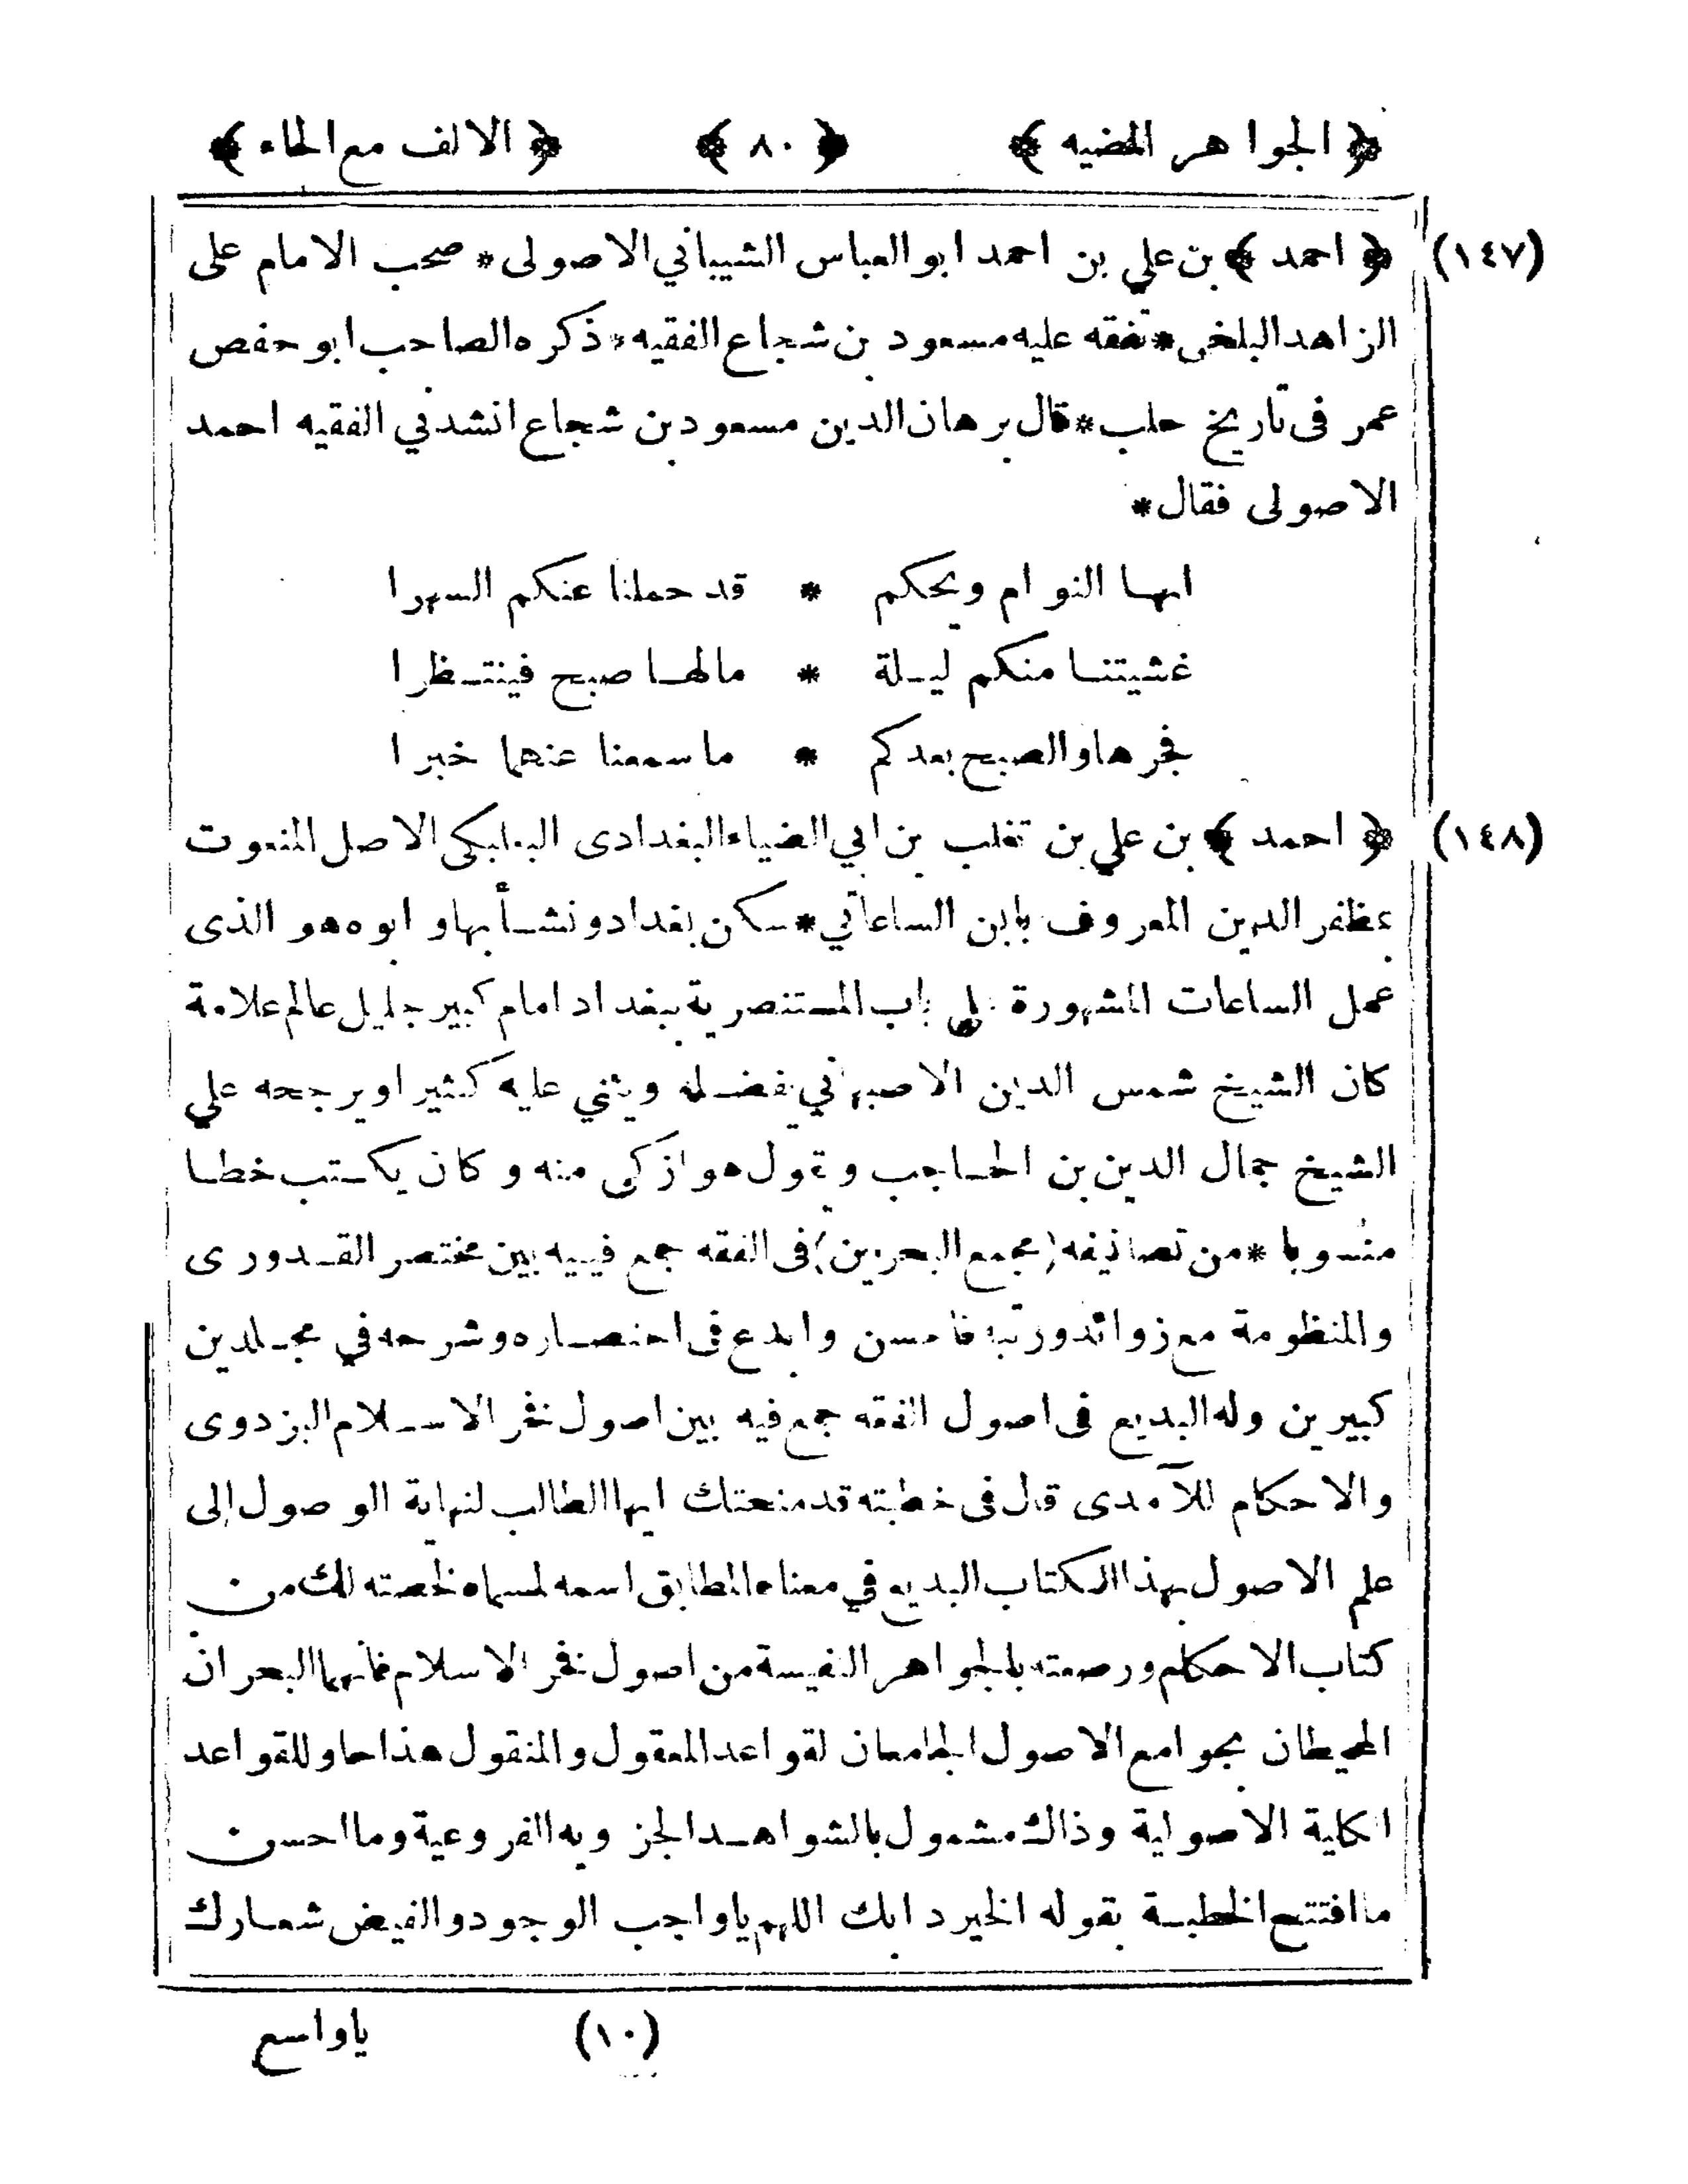 ﴿ الجواهر المضيه ﴾ ﴿ ٨٠ ﴾ ﴿ الالف مع الحاء ﴾
(١٤٧) ﴿ احمد ﴾ بن علي بن احمد ابو العباس الشيباني الاصولى * صحب الامام على
الزاهد البلخى * تفقه عليه مسعود بن شجاع الفقيه * ذكره الصاحب ابو حفص
عمر فى تاريخ حلب * قال برهان الدين مسعود بن شجاع انشدني الفقيه احمد
الاصولى فقال *
ايها النوام ويحكم * قد حملنا عنكم السهرا
غشيتنا منكم ليلة * مالها صبح فينتظرا
فجرها والصبح بعدكم * ما سمعنا عنهما خبرا
(١٤٨) ﴿ احمد ﴾ بن علي بن تغلب بن ابي الضياء البغدادى البعلبكى الاصل المنعوت
بمظفر الدين المعروف بابن الساعاتي * سكن بغداد ونشأ بها و ابوه هو الذى
عمل الساعات المشهورة على باب المستنصرية ببغداد امام كبير جليل عالم علامة
كان الشيخ شمس الدين الاصبهاني يفضله ويثني عليه كثيرا ويرجحه علي
الشيخ جمال الدين بن الحاجب ويقول هو ازكى منه و كان يكتب خطا
منسوبا * من تصانيفه (مجمع البحرين) فى الفقه جمع فيه بين مختصر القدورى
والمنظومة مع زوائد ورتبه فاحسن وابدع فى اختصاره وشرحه في مجلدين
كبيرين وله البديع فى اصول الفقه جمع فيه بين اصول فخر الاسلام البزدوى
والاحكام للآمدى قال فى خطبته قد منحتك ايها الطالب لنهاية الوصول إلى
علم الاصول بهذا الكتاب البديع في معناه المطابق اسمه لمسماه لخصته لك من
كتاب الاحكام ورصعته بالجواهر النفيسة من اصول فخر الاسلام فانهما البحران
المحيطان بجوامع الاصول الجامعان لقواعد المعقول والمنقول هذا حاو للقواعد
الكلية الاصولية وذاك مشمول بالشواهد الجزويه الفروعية وما احسن
ما افتتح الخطبة بقوله الخير دابك اللهم يا واجب الوجود والفيض شعارك
(١٠) يا واسع